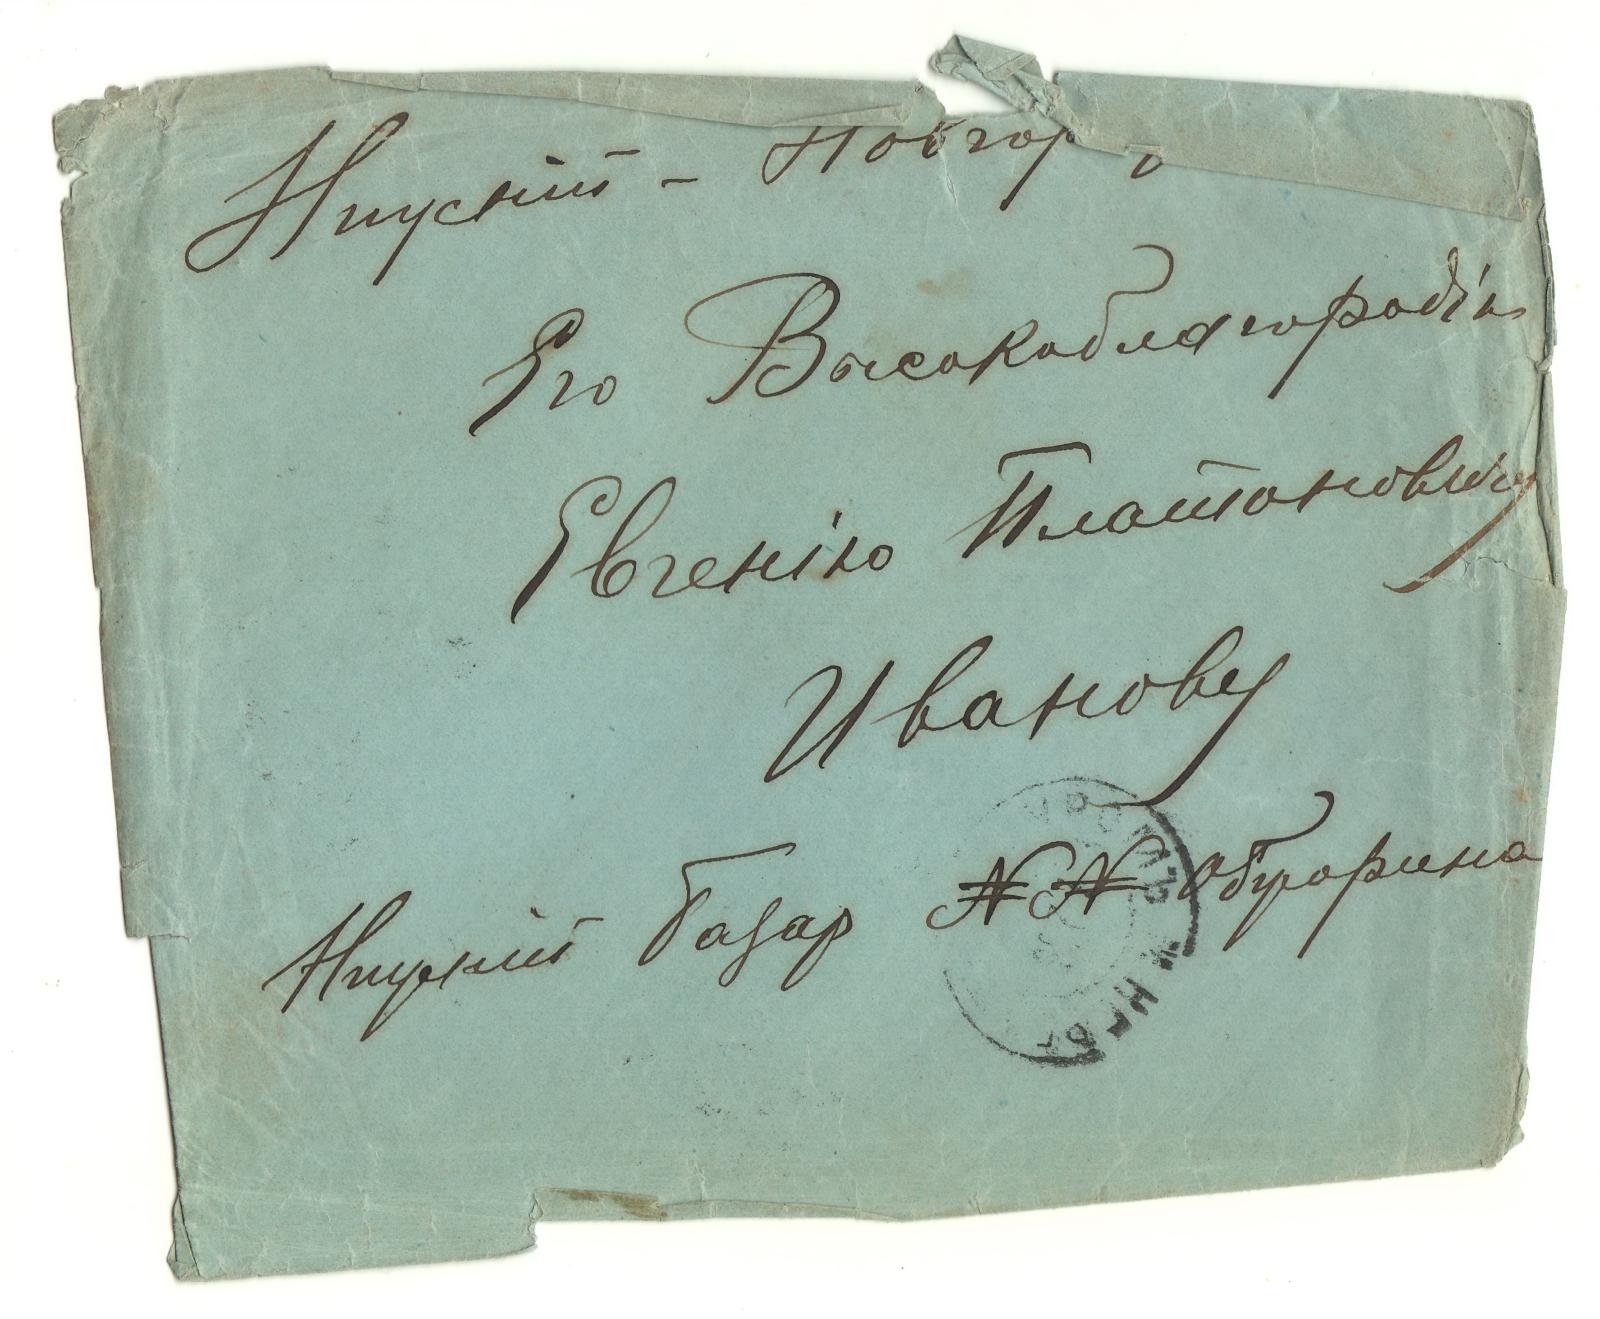 Нижній - Новгор
Его Высокоблагородію
Евгенію Платоновичу
Иванову
Нижній базар NN Обжорина
МУРОМЪ